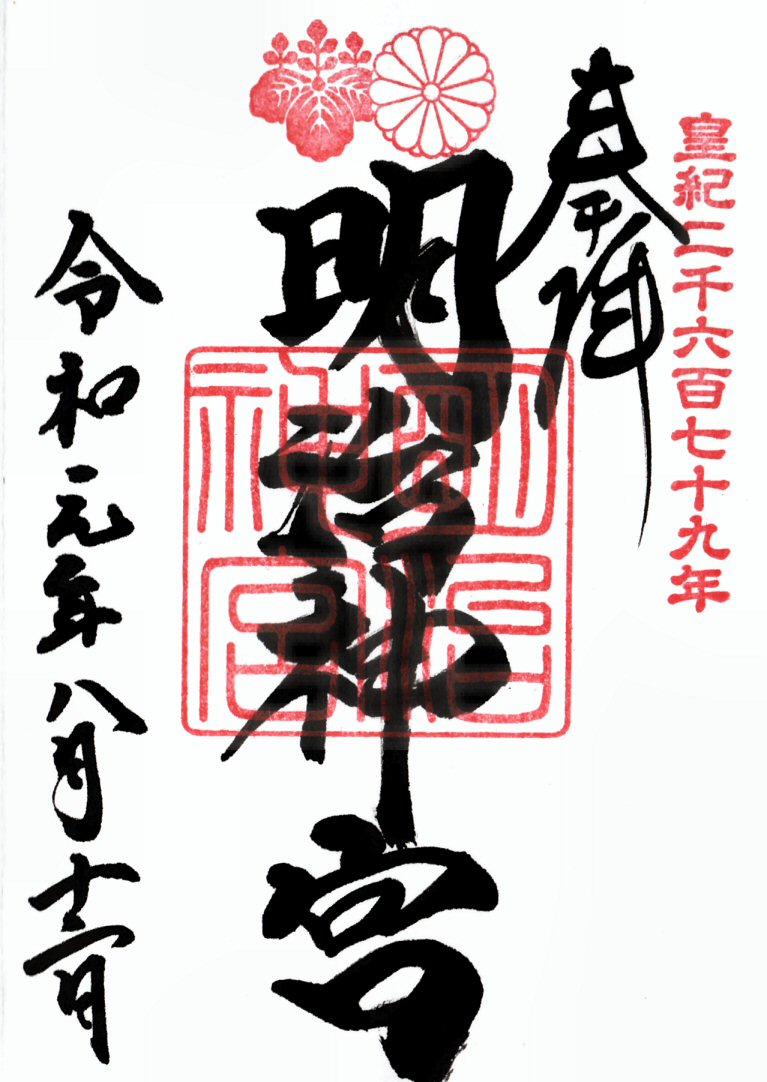 皇紀二千六百七十九年
奉拝
明治神宮
明治神宮
令和元年八月十二日